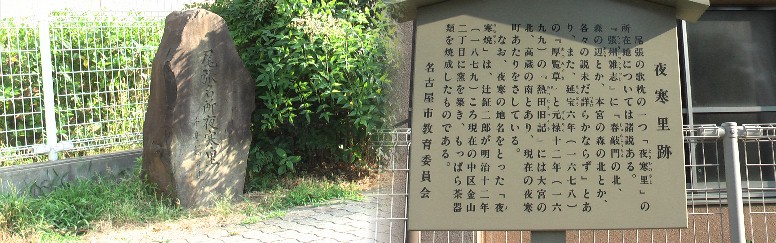 尾張名所夜寒里
夜寒里跡
尾張の歌枕の一つ「夜寒里」の
所在地については諸説ある。
『張州雑志』に「春敲門の北、
森の辺とか、本宮の森の北とか、
各々の説未だ詳らかならず」とあ
り、また、延宝六年(一六七八)
の『厚覧草』と元禄十二年(一六
九九)の『熱田旧記』には大宮の
北、高蔵の南とあり、現在の夜寒
町あたりをさしている。
なお、夜寒の地名をとった「夜
寒焼」は、辻鉦二郎が明治十二年
(一八七九)ころ現在の中区金山
二丁目に窯を築き、もっぱら茶器
類を焼成したものである。
名古屋市教育委員会